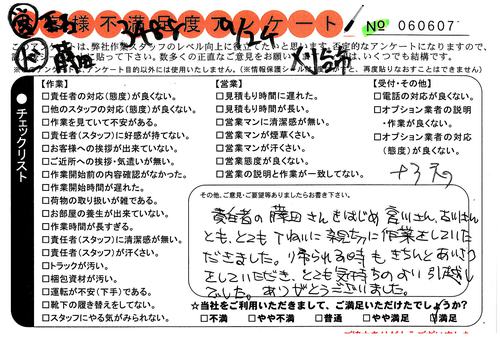 お客様不満足度アンケート!
No 060607
このアンケートは、弊社作業スタッフのレベル向上に役立てたいと思います。否定的なアンケートになりますので、
いつでも結構です。
●チェックリスト
【作業】
□責任者の対応(態度)が良くない。
□他のスタッフの対応(態度)が良くない。
□作業を見ていて不安がある。
□責任者(スタッフ)に好感が持てない。
□お客様への挨拶が出来ていない。
□ご近所への挨拶・気遣いが無い。
□作業開始前の内容確認がなかった。
□作業開始時間が遅れた。
□荷物の取り扱いが雑である。
□お部屋の養生が出来ていない。
□作業時間が長すぎる。
□責任者(スタッフ)に清潔感が無い。
□責任者(スタッフ)が汗くさい。
□トラックが汚い。
□梱包資材が汚い。
□運転が不安(下手)である。
□靴下の履き替えをしてない。
□スタッフにやる気がみられない。
【営業】
□見積もり時間に遅れた。
□見積もり時間が長い。
□営業マンに清潔感が無い。
□営業マンが煙草くさい。
□営業マンが汗くさい。
□営業態度が良くない。
□営業の説明と作業が一致してない。
【受付・その他】
□電話の対応が良くない。
□オプション業者の説明
・作業が良くない。
□オプション業者の対応
(態度)が良くない。
その他、ご意見・ご要望等ありましたらお書き下さい。
責任者の藤田さんをはじめ宮川さん、古川さん
とも、とてもていねいに親切に作業をしていた
だきました。帰られる時もきちんとあいさつ
をしていただき、とても気持ちのよい引越し
でした。ありがとうございました。
☆当社をご利用いただきまして、ご満足いただけたでしょうか?
□不満 □やや不満 □普通 □やや満足 □満足